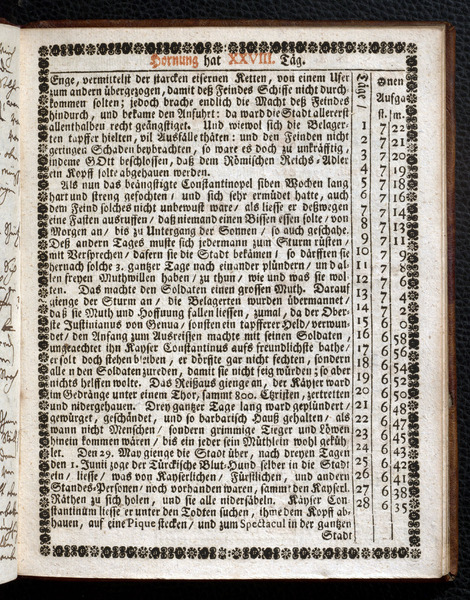 Hornung hat XXVIII. Tag.
Enge, vermittelst der starcken eisernen Ketten, von einem Ufer
zum andern übergezogen, damit deß Feindes Schiffe nicht durch
kommen solten; jedoch brache endlich die Macht deß Feindes
hindurch, und bekame den Anfuhrt: da ward die Stadt allererst
allenthalben recht geängstiget. Und wiewol sich die Belager-
ten tapffer hielten, vil Ausfälle thäten: und den Feinden nicht
geringen Schaden beybrachten, so ware es doch zu unkräfftig,
indeme GOtt beschlossen, daß dem Römischen Reichs-Adler
ein Kopff solte abgehauen werden.
Als nun das beängstigte Constantinopel siben Wochen lang
hart und streng gefochten, und sich sehr ermüdet hatte, auch
dem Feind solches nicht unbewust ware/ als liesse er deßwegen
eine Fasten ausruffen/ daß niemand einen Bissen essen solte/ von
Morgen an/ bis zu Untergang der Sonnen/ so auch geschahe.
Deß andern Tages muste sich jedermann zum Sturm rüsten/
mit Versprechen/ dafern sie die Stadt bekämen/ so dörfften sie
hernach solche 3. gantzer Tage nach einander plündern/ und al-
len freyen Muthwillen haben/ zu thun/ wie und was sie wol-
len. Das machte den Soldaten einen grossen Muth. Darauf
gienge der Sturm an/ die Belagerten wurden übermannet/
daß sie Muth und Hoffnung fallen liessen, zumal, da der Ober-
ste Justinianus von Genua/ sonsten ein tapfferer Held/ verwun-
det/ den Anfang zum Ausreissen machte mit seinen Soldaten,
umgeachtet ihn Kayser Constantinus aufs freundlichste bathe/
er solt doch stehen bleiben/ er dörffte gar nicht fechten, sondern
alle n den Soldaten zureden, damit sie nicht feig würden; so aber
nichts helffen wolte. Das Reißaus gienge an, der Käyser ward
im Gedränge unter einem Thor, sammt 800. Christen, zertretten
und nidergehauen. Drey gantzer Tage lang ward geplündert/
gewürget, geschändet, und so barbarisch Hauß gehalten/ als
wann nicht Menschen/ sondern grimmige Tieger und Löwen
hinein kommen wären/ bis ein jeder sein Müthlein wohl geküh-
let. Den 29. May gienge die Stadt über, nach dreyen Tagen
den 1. Junii zoge der Türckische Blut-Hund selber in die Stadt
ein/ liesse/ was von Kayserlichen/ Fürstlichen, und andern
Standes-Personen/ noch vorhanden waren/ sammt den Kayserl.
Räthen zu sich holen, und sie alle nidersäbeln. Käyser Con-
stantinum liesse er unter den Todten suchen, ihme dem Kopff ab-
hauen, auf eine Pique stecken/ und zum Spectacul in der gantzen
Stadt
Täge/ Sonen
Aufga
st. /m.
1 7 22
2 7 21
3 7 20
4 7 19
5 7 18
6 7 16
7 7 14
8 7 13
9 7 11
10 7 9
11 7 8
12 7 6
13 7 4
14 7 2
15 6 0
16 6 58
17 6 56
18 6 54
19 6 52
20 6 50
21 6 48
22 6 47
23 6 45
24 6 44
25 6 42
26 6 41
27 6 38
28 6 35